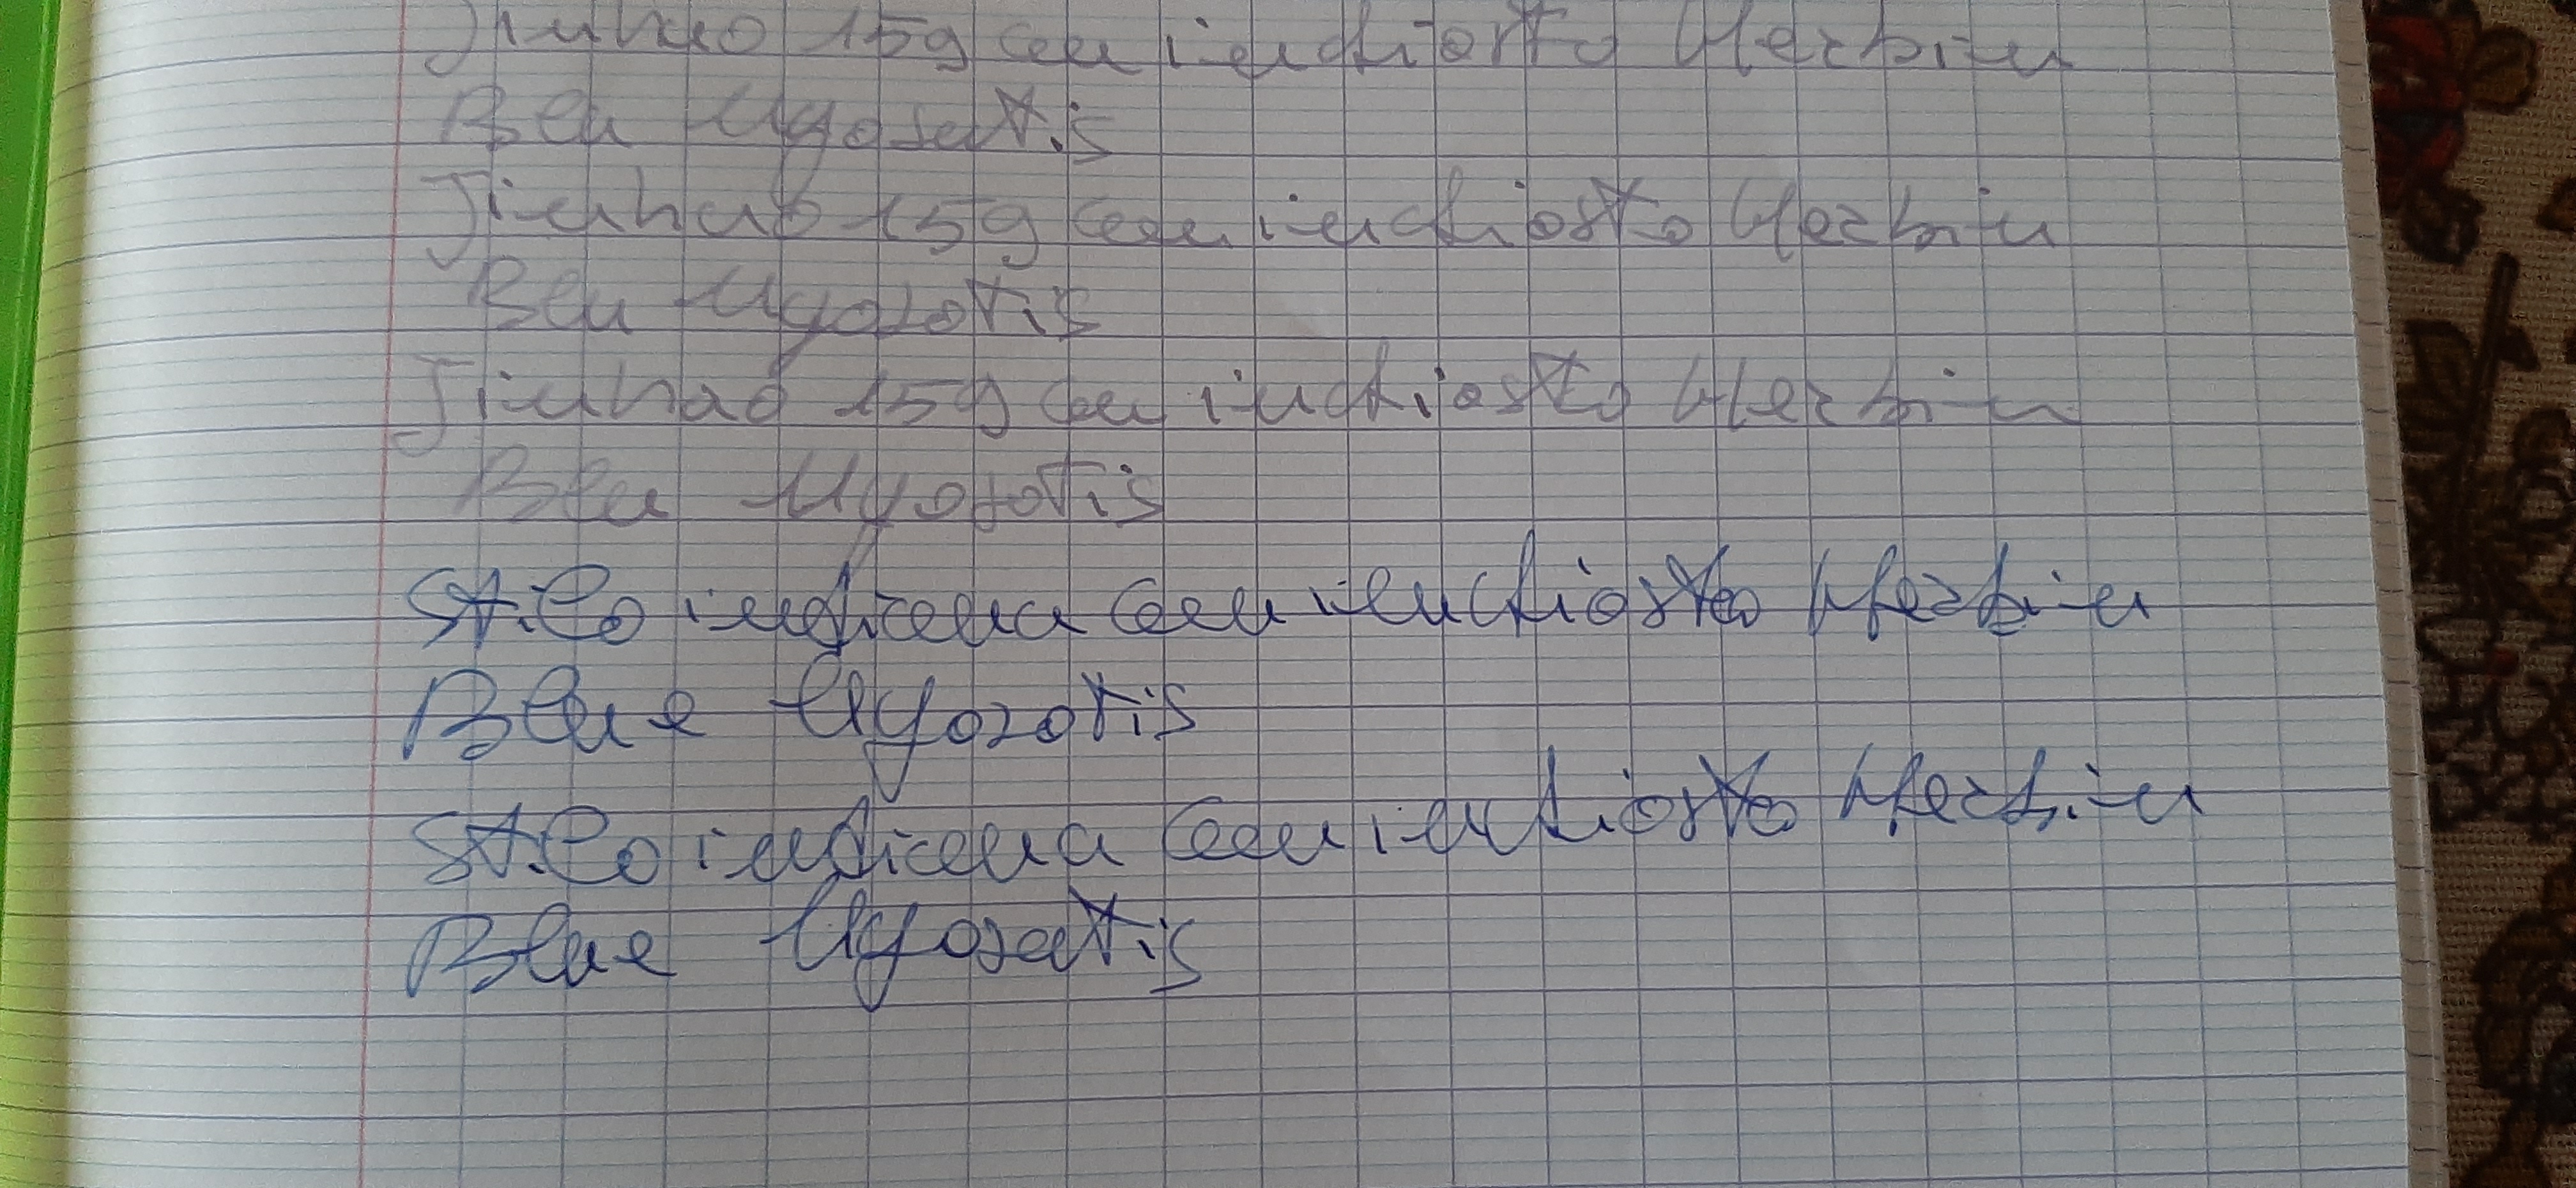 Jinhao 159 con inchiostro Herbin
Bleu Myosotis
Jinhao 159 con inchiostro Herbin
Bleu Myosotis
Jinhao 159 con inchiostro Herbin
Bleu Myosotis
Stilo indiana con inchiostro Herbin
Blue Myosotis
Stilo indiana con inchiostro Herbin
Blue Myosotis